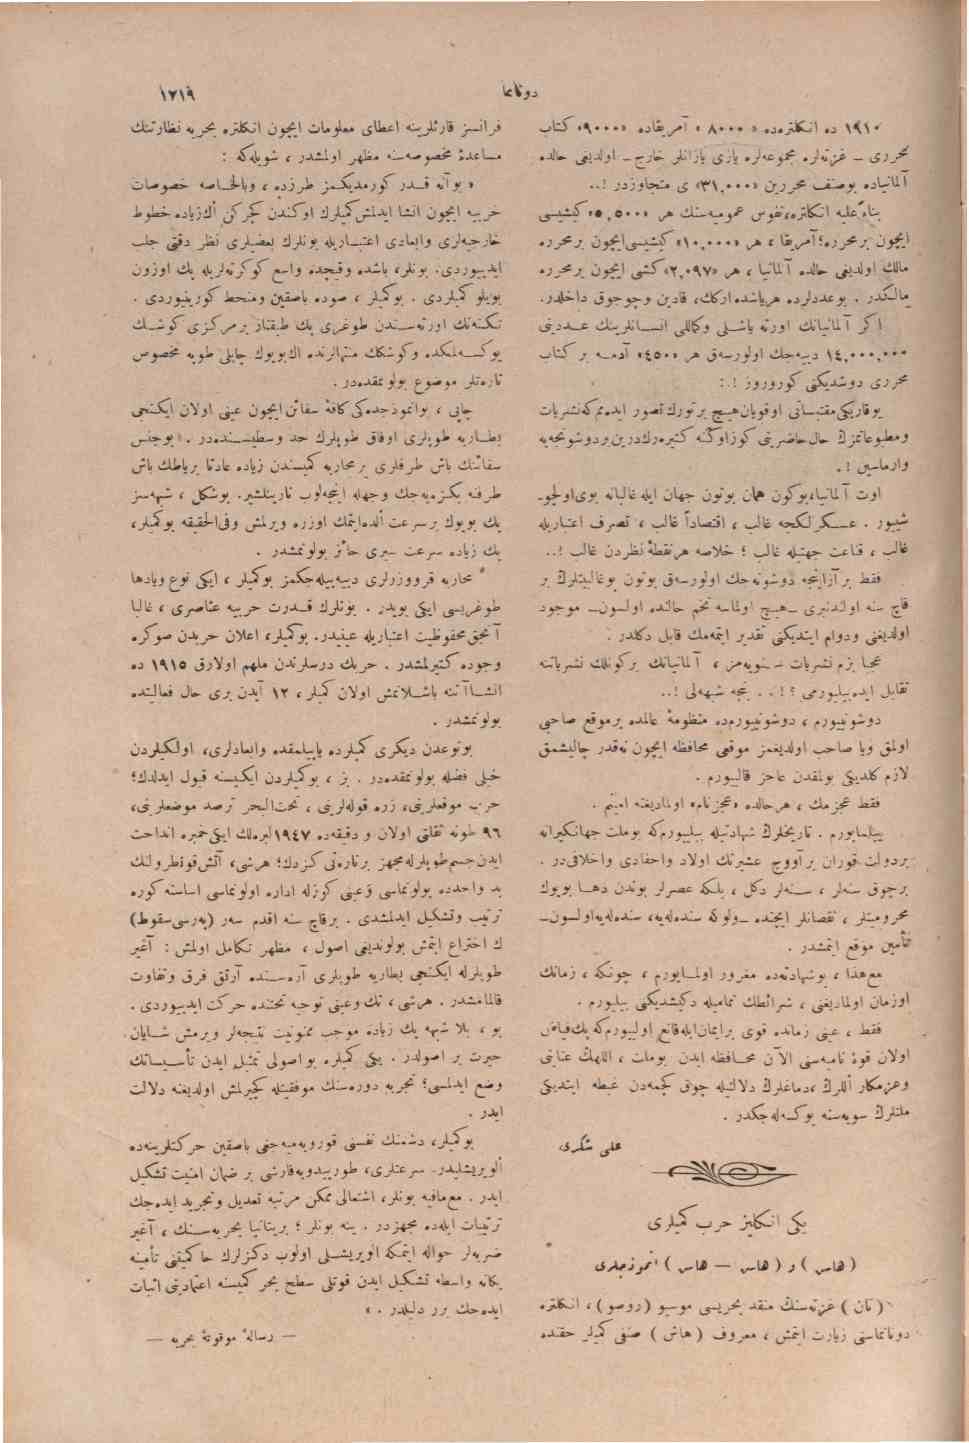 دوناما
١٢١٩
١٩١٠ ده انكلتره‌ده «٨٠٠٠» آمريقاده «٩٠٠٠» كتاب
محررى ـ غزته‌لره مجموعه‌لره يازى يازانلر خارج ـ اولديغى حالده
آلمانياده بوصنف محررين «٣١,٠٠٠» ى متجاوزدر !..
بناءً عليه انكلتره، نفوس عموميه‌سنك هر «٥,٥٠٠» كيشيسى
ايچون برمحرره؛ آمريقا ، هر «١٠,٠٠٠» كيشيسى ايچون برمحرره
مالك اولديغى حالده آلمانيا ، هر «٢,٠٩٧» كشى ايچون برمحرره
مالكدر . بوعددلرده هرياشده اركك، قادين وچوجوق داخلدر.
اكر آلمانيانك اورته ياشلى وكماللى انسانلرينك عددينى
١٤,٠٠٠,٠٠٠ دييه‌جك اولورسه‌ق هر «٤٥٠» آدمه بر كتاب
محررى دوشديكنى كورورز ! :
يوقاريكى مقتبساتى اوقويان هيچ برتورك تصور ايده‌مم كه نشريات
ومطبوعاتمزك حال حاضرينى كوزاوكنه كتيره‌رك درين بردوشونجه‌يه
وارماسين ! .
اوت آلمانيا، بوكون همان بوتون جهان ايله غالبانه بوى اولچو-
شييور . عسكرلكجه غالب ، اقتصاداً غالب ، تصرف اعتباريله
غالب ، قناعت جهتيله غالب ؛ خلاصه هرنقطۀ نظردن غالب !..
فقط بر آز اينجه دوشونه‌جك اولورسه‌ق بوتون بوغالبيتلرك بر
قاچ سنه اولدنبرى ـ هيچ اولماسه تخم حالنده اولسون ـ موجود
اولديغنى ودوام ايتديكنى تقدير ايتمه‌مك قابل دكلدر .
عجبا بزم نشريات سنويه‌مز ، آلمانيانك بركونلك نشرياتنه
تقابل ايده‌بيليورمى ؟ ! . . نجه شبهه‌لى !..
دوشونييورم ، دوشونييورم‌ده منظومۀ عالمده برموقع صاحبى
اولمق ويا صاحب اولديغمز موقعى محافظه ايچون نه‌قدر چاليشمق
لازم كلديكى بولمقدن عاجز قالييورم .
فقط عجزمك ، هرحالده «عجزتام» اولماديغنه امينم .
بيلمايورم . تاريخلرك شهادتيله بيليورم كه بوملت جهانكيرانه
بردولت قوران برآووچ عشيرتك اولاد واحفادى واخلافى‌در .
برچوق سنه‌لر ، سنه‌لر دكل ، بلكه عصرلر بوندن دها بويوك
محروميتلر ، نقصانلر ايچنده ـ ولوكه سنده‌له‌يه، سنده‌له‌يه اولسون ـ
تأمين موقع ايتمشدر .
مع هذا ، بوشهادتده مغرور اولمايورم ، چونكه ، زمانك
اوزمان اولماديغنى ، شرائطك تماميله دكيشديكنى بيليورم .
فقط ، عينى زمانده قوى برايمان ايله قانع اولييورم كه پك فياض
اولان قوۀ ناميه‌سنى الآن محافظه ايدن بوملت ، اللهك عنايتى
وعزمكار اللرك ، دماغلرك دلالتيله چوق كچمه‌دن غبطه ايتديكى
ملتلرك سويه‌سنه يوكسه‌له‌جكدر .
على شكرى
يكى انكليز حرب كميلرى
( هاس ) و ( هاس — هاس ) انموذجلرى
( تان ) غزته‌سنك منقد بحريسى موسيو (روصو) ، انكلتره
دونانماسنى زيارت ايتمش ، معروف ( هاش ) صنفى كميلر حقنده
فرانسز قارئلرينه اعطاى معلومات ايچون انكلتره بحريه نظارتنك
مساعدۀ مخصوصه‌سنه مظهر اولمشدر ، شويله‌كه :
« بوآنه قدر كورمديكمز طرزده ، وبالخاصه خصوصات
حربيه ايچون انشا ايدلمش كميلرك اوكندن كچركن اك زياده خطوط
خارجيه‌لرى وابعادى اعتباريله بونلرك بعضيلرى نظر دقتى جلب
ايدييوردى. بونلر، باشده وقيچده واسع كوكرته‌لريله پك اوزون
بويلو كميلردى . بوكميلر ، صوده باصقين ومنحط كورينيوردى .
تكنه‌نك اورته‌سندن طوغرى يك طبقه‌لر برمركزى كوشك
يوكسه‌لمكده وكوشكك منتهالرنده اك بويوك چاپلى طوپه مخصوص
تاره‌تلر موضوع بولونمقده‌در .
چاپى ، بوانموذجده‌كى كافۀ سفائن ايچون عينى اولان ايكنجى
بطاريه طوپلرى اوفاق طوپلرك حد وسطيسنده‌در . بوجنس
سفائنك باش طرفلرى برمحاربه كميسندن زياده عادتا برياطك باش
طرفنه بكزه‌يه‌جك وجهله اينجه‌لوب تارينلشير. بوشكل ، شبهه‌سز
پك بويوك برسرعت الده ايتمك اوزره ويرلمش وفى الحقيقه بوكميلر،
پك زياده سرعت سيرى حائز بولونمشدر .
محاربه قرووزرلرى دييه‌بيله‌جكمز بوكميلر ، ايكى نوع ويادها
طوغريسى ايكى بويدر . بونلرك قدرت حربيه عناصرى ، غالبا
آنجق محفوظيت اعتباريله عينيدر. بوكميلر، اعلان حربدن صوكره
وجوده كتيرلمشدر . حربك درسلرندن ملهم اولارق ١٩١٥ ده
انشاآتنه باشلانمش اولان كميلر ، ١٢ آيدن برى حال فعاليتده
بولونمشدر .
بونوعدن ديكرى كميلرده ياپيلمقده وابعادلرى، اولكيلردن
خيلى فضله بولونمقده‌در . بز ، بوكميلردن ايكيسنه قبول ايدلدك؛
حرب موقعلرينى، زره قوله‌لرينى ، تحت‌البحر ترصد موضعلرينى،
٩٦ طونه ثقلتى اولان و دقيقه‌ده ١٩٤٧ ليبره‌لك ايكى خمبره انداخت
ايدن جسم طوپلرله مجهز برتاره‌تى كزدك؛ هرشى، آتش قونطرولنك
يد واحدده بولونماسى وعينى كوزله اداره اولونماسى اساسنه كوره
ترتيب وتشكيل ايدلمشدى . برقاچ سنه اقدم سه‌ر (په‌رسى سقوط)
ك اختراع ايتمش بولونديغى اصول ، مظهر تكامل اولمش : آغير
طوپلرله ايكنجى بطاريه طوپلرى آره‌سنده آرتق فرق وتفاوت
قالمامشدر . هرشى ، تك وعينى توجيه تحتنده حركت ايدييوردى .
بو ، بلا شبهه پك زياده موجب ممنونيت نتيجه‌لر ويرمش شايان
حيرت بر اصولدر . يكى كميلره بواصولى تمثيل ايدن تأسيساتك
وضع ايدلمسى؛ تجربه دوره‌سنك موفقيتله كچيرلمش اولديغنه دلالت
ايدر .
بوكميلر، دشمنك نفسنى قورويه‌ميه‌جغى باصقين حركتلرينه‌ده
الويريشليدر. سرعتلرى، طورپيدويه‌قارشى بر ضمان امنيت تشكيل
ايدر . مع‌مافيه بونلر، اشتعالى ممكن مرتبه تعديل وتجريد ايده‌جك
ترتيبات ايله‌ده مجهزدر . ينه بونلر ؛ بريتانيا بحريه‌سنك ، آغير
ضربه‌لر حواله ايتمكه الويريشلى اولوب دكزلرك حاكميتنى تأمينه
يكانه واسطه تشكيل ايدن قوتلى سطح بحر كميسنه اعتمادينى اثبات
ايده‌جك برر دليلدر . »
— رسالۀ موقوتۀ بحريه —